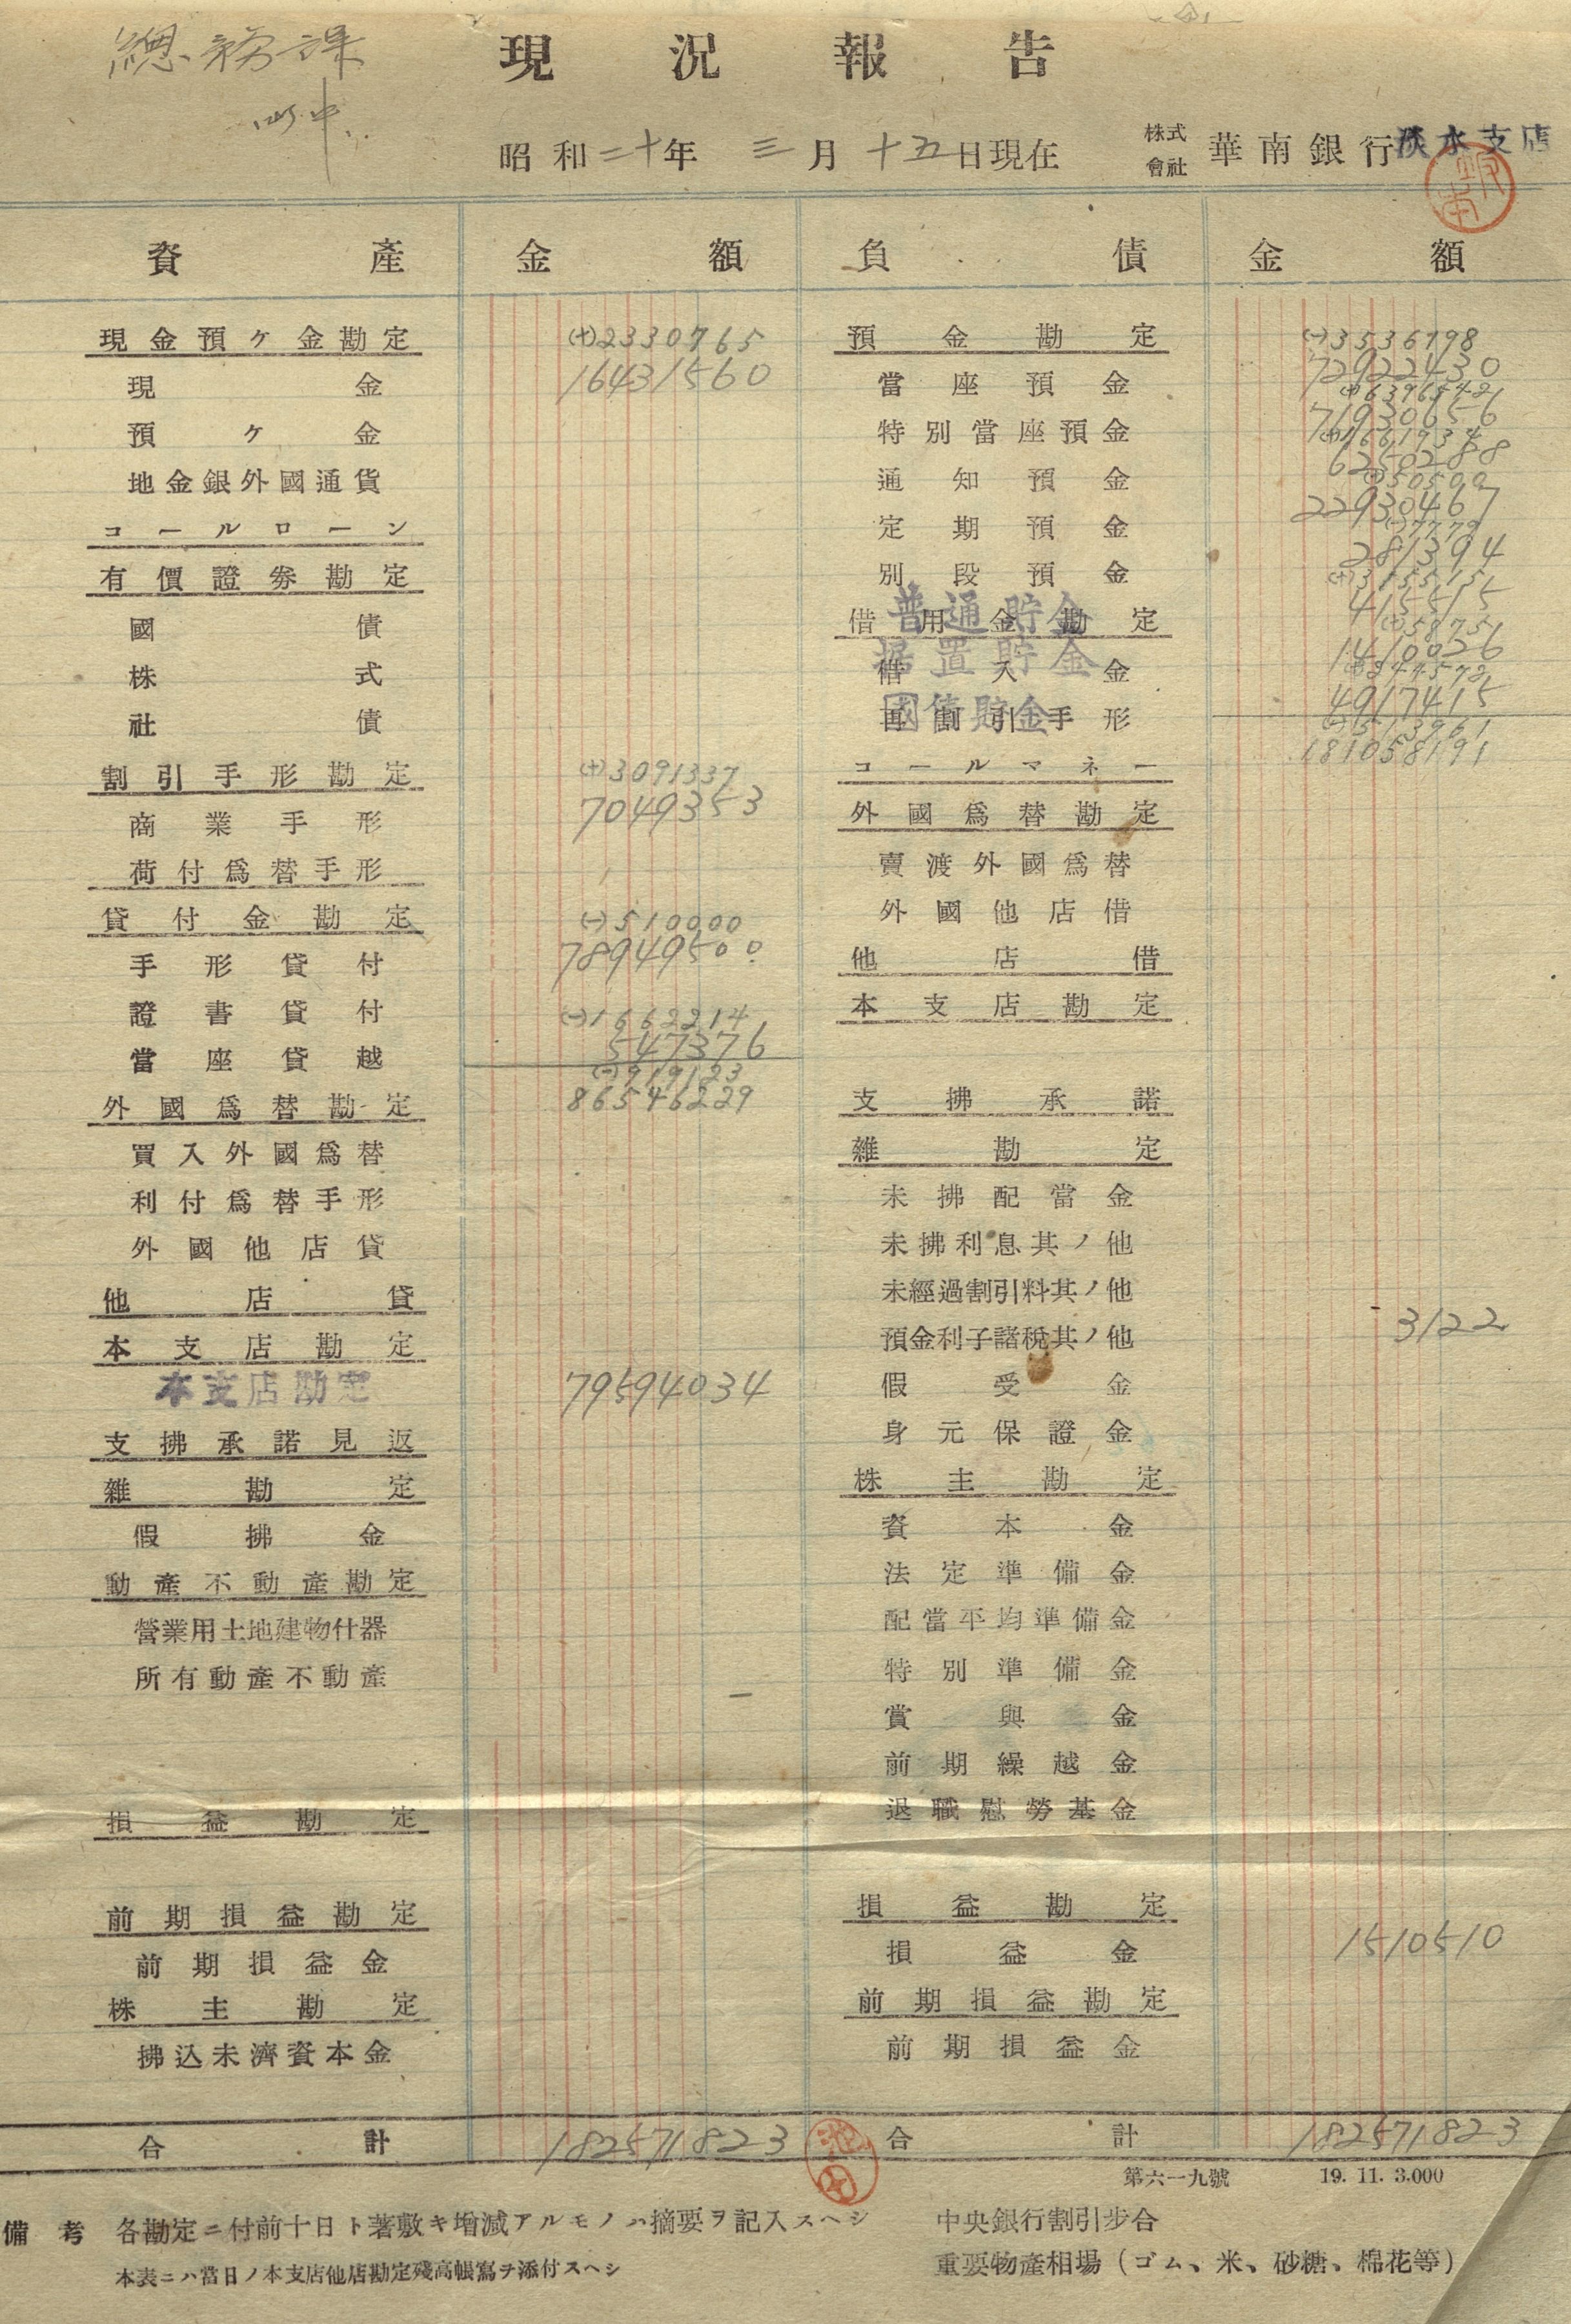 總務課
御中
現況報告
昭和二十年三月十五日現在
株式會社 華南銀行淡水支店
資產 金額 負債 金額
現金預ケ金勘定 (+)2330765
現金 16431560
預ケ金
地金銀外國通貨
コールローン
有價證券勘定
國債
株式
社債
割引手形勘定 (+)3091337
商業手形 7049353
荷付爲替手形
貸付金勘定 (-)510000
手形貸付 78949500
證書貸付 (-)1662214
當座貸越 547376
919123
外國爲替勘定 86546229
買入外國爲替
利付爲替手形
外國他店貸
他店貸
本支店勘定
本支店勘定 79594034
支拂承諾見返
雜勘定
假拂金
動產不動產勘定
營業用土地建物什器
所有動產不動產
損益勘定
前期損益勘定
前期損益金
株主勘定
拂込未濟資本金
合計 182571823
預金勘定 (-)3536798
當座預金 72922430
特別當座預金 71930656
通知預金 6250288
(+)50500
定期預金 22930467
(-)7779
別段預金 281394
借用金勘定
普通貯金 415515
(+)58751
据置貯金 1410026
借入金
國債貯金 4917415
再割引手形
181058191
コールマネー
外國爲替勘定
賣渡外國爲替
外國他店借
他店借
本支店勘定
支拂承諾
雜勘定
未拂配當金
未拂利息其ノ他
未經過割引料其ノ他
預金利子諸稅其ノ他 3122
假受金
身元保證金
株主勘定
資本金
法定準備金
配當平均準備金
特別準備金
賞與金
前期繰越金
退職慰勞基金
損益勘定
損益金 1510510
前期損益勘定
前期損益金
合計 182571823
第六一九號 19. 11. 3.000
備考 各勘定ニ付前十日ト著敷キ增減アルモノハ摘要ヲ記入スヘシ
本表ニハ當日ノ本支店他店勘定殘高帳寫ヲ添付スヘシ
中央銀行割引步合
重要物產相場（ゴム、米、砂糖、棉花等）